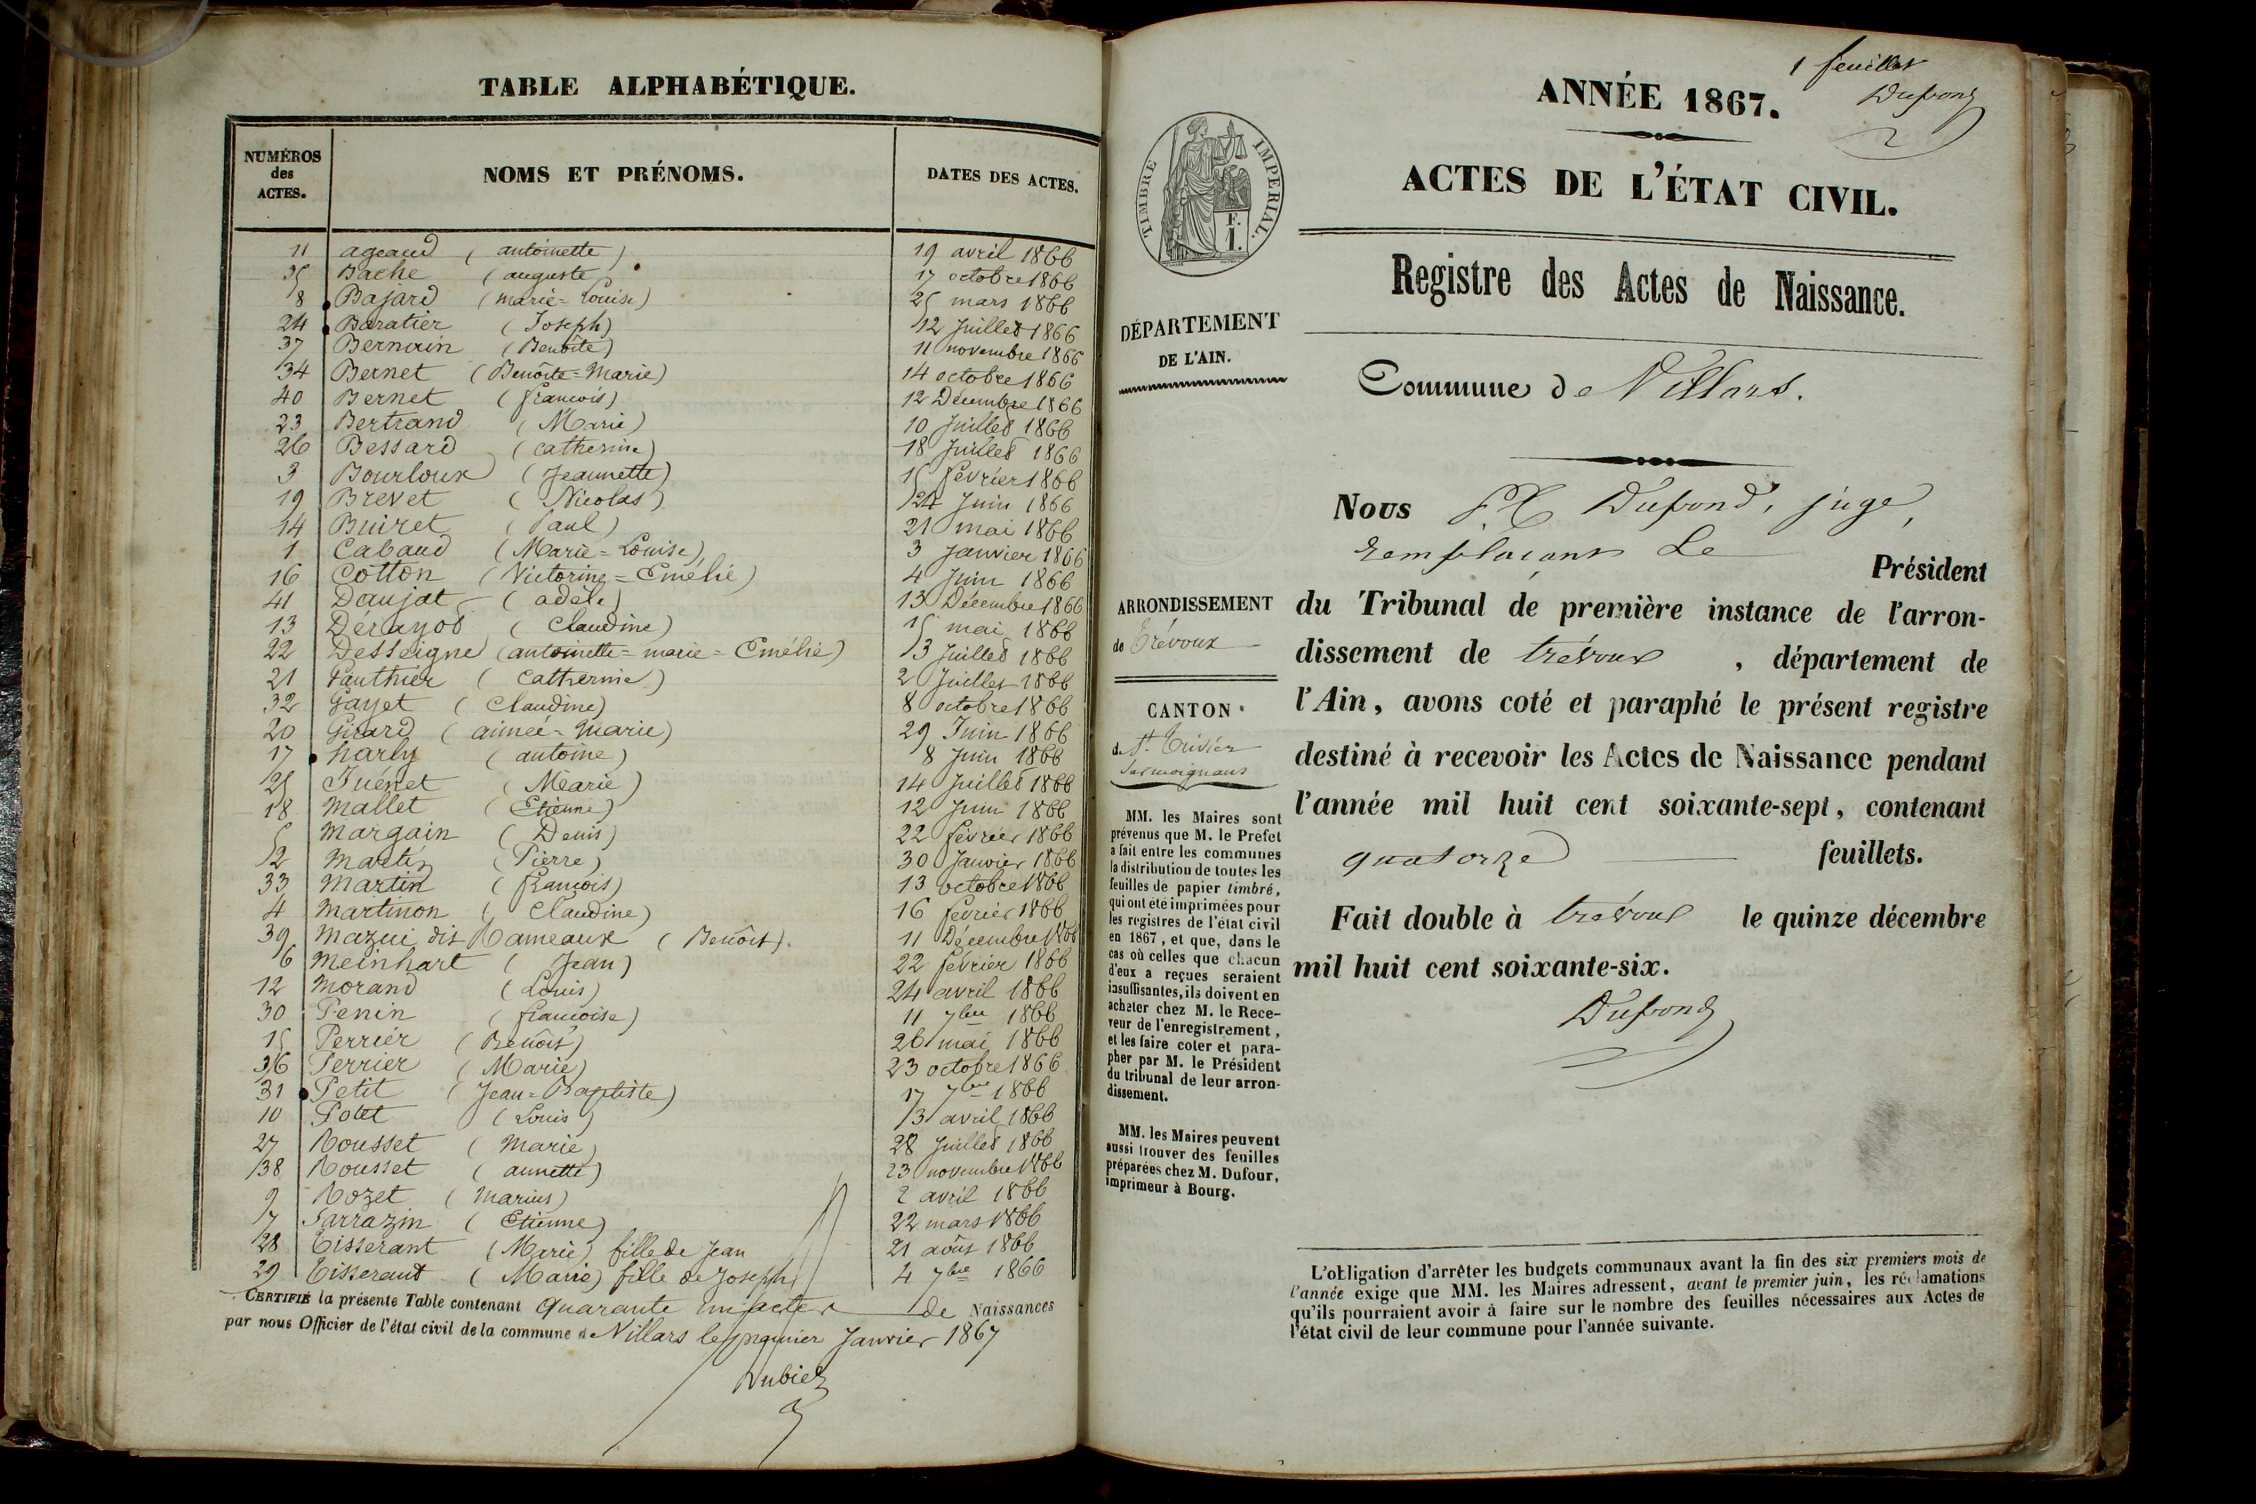 TABLE ALPHABÉTIQUE.
NUMÉROS des ACTES. NOMS ET PRÉNOMS. DATES DES ACTES.
11 ageaud (antoinette) 19 avril 1866
35 Bache (auguste) 17 octobre 1866
8 Bajard (marie=Louise) 25 mars 1866
24 Baratier (Joseph) 12 Juillet 1866
37 Bernain (Benoîte) 11 novembre 1866
34 Bernet (Benoîte=Marie) 14 octobre 1866
40 Bernet (françois) 12 Décembre 1866
23 Bertrand (Marie) 10 Juillet 1866
26 Bessard (catherine) 18 Juillet 1866
3 Bourloux (Jeannette) 15 février 1866
19 Brevet (Nicolas) 24 Juin 1866
14 Buiret (Paul) 21 mai 1866
1 Cabaud (Marie=Louise) 3 Janvier 1866
16 Cotton (Victorine=Emélie) 4 Juin 1866
41 Daujat (adèle) 13 Décembre 1866
13 Dérayos (Claudine) 15 mai 1866
22 Desseigne (antoinette=marie=Emélie) 3 Juillet 1866
21 Gauthier (catherine) 2 Juillet 1866
32 Gayet (Claudine) 8 octobre 1866
20 Girard (aimée=Marie) 29 Juin 1866
17 harly (antoine) 8 Juin 1866
25 Juénet (Marie) 14 Juillet 1866
18 Mallet (Etienne) 12 Juin 1866
5 Margain (Denis) 22 février 1866
2 Martin (Pierre) 30 Janvier 1866
33 Martin (françois) 13 octobre 1866
4 Martinon (Claudine) 16 février 1866
39 Mazui dit Rameaux (Benoît). 11 Décembre 1866
6 Meinhart (Jean) 22 février 1866
12 Morand (Louis) 24 avril 1866
30 Penin (françoise) 11 7bre 1866
15 Perrier (Benoît) 26 mai 1866
36 Perrier (Marie) 23 octobre 1866
31 Petit (Jean=Baptiste) 17 7bre 1866
10 Potet (Louis) 13 avril 1866
27 Rousset (Marie) 28 Juillet 1866
38 Rousset (annette) 23 novembre 1866
9 Rozet (Marius) 2 avril 1866
7 Sarrazin (Etienne) 22 mars 1866
28 Tisserant (Marie) fille de Jean 21 août 1866
29 Tisserant (Marie) fille de Joseph 4 7bre 1866
CERTIFIÉ la présente Table contenant quarante un actes de Naissances
par nous Officier de l'état civil de la commune de Villars le premier Janvier 1867
Dubiez
1 feuillet
Dupond
ANNÉE 1867.
ACTES DE L'ÉTAT CIVIL.
Registre des Actes de Naissance.
Commune de Villars.
TIMBRE IMPERIAL.
F. I.
DÉPARTEMENT
DE L'AIN.
ARRONDISSEMENT
de Trévoux
CANTON
de St. Trivier
MM. les Maires sont
prévenus que M. le Préfet
a fait entre les communes
la distribution de toutes les
feuilles de papier timbré,
qui ont été imprimées pour
les registres de l'état civil
en 1867, et que, dans le
cas où celles que chacun
d'eux a reçues seraient
insuffisantes, ils doivent en
acheter chez M. le Rece-
veur de l'enregistrement,
et les faire coter et para-
pher par M. le Président
du tribunal de leur arron-
dissement.
MM. les Maires peuvent
aussi trouver des feuilles
préparées chez M. Dufour,
imprimeur à Bourg.
Nous Dupond, juge,
remplaçant Le Président
du Tribunal de première instance de l'arron-
dissement de trévoux, département de
l'Ain, avons coté et paraphé le présent registre
destiné à recevoir les Actes de Naissance pendant
l'année mil huit cent soixante-sept, contenant
quatorze feuillets.
Fait double à trévoux le quinze décembre
mil huit cent soixante-six.
Dupond
L'obligation d'arrêter les budgets communaux avant la fin des six premiers mois de
l'année exige que MM. les Maires adressent, avant le premier juin, les réclamations
qu'ils pourraient avoir à faire sur le nombre des feuilles nécessaires aux Actes de
l'état civil de leur commune pour l'année suivante.